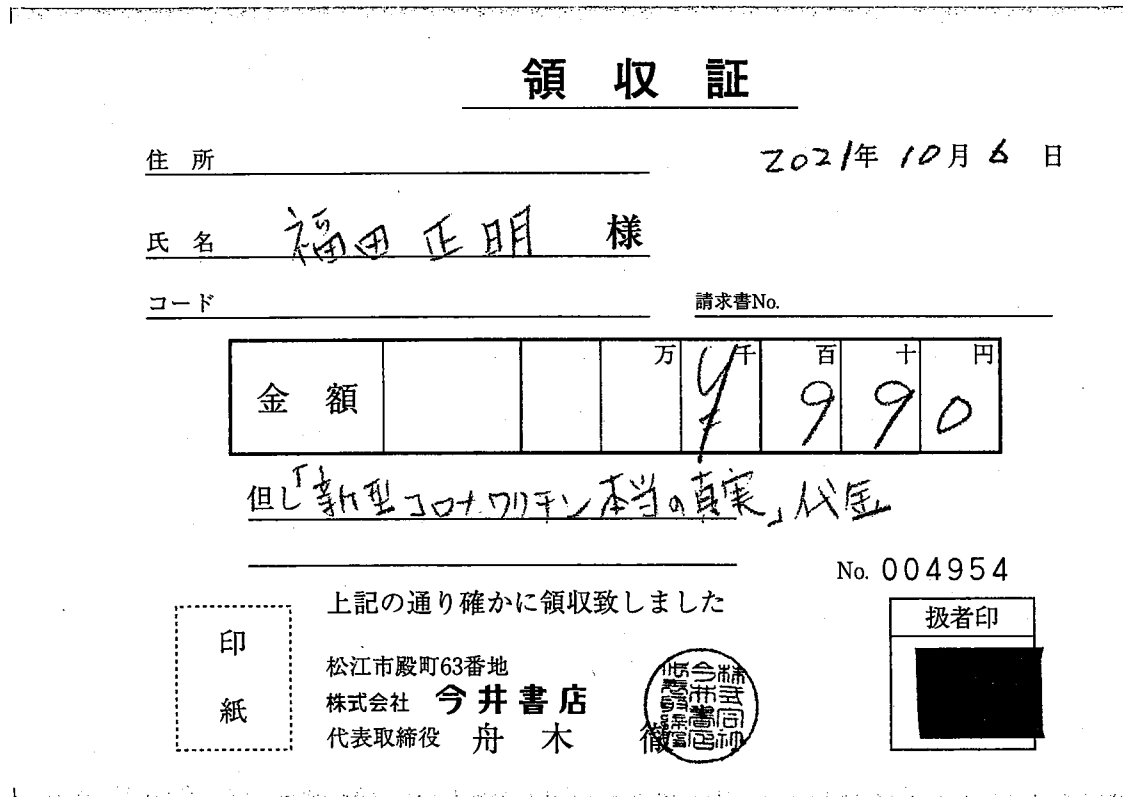 領収証
住所
2021年10月6日
氏名 福田正明 様
コード
請求書No.
金額 万 千 百 十 円
¥990
但し「新型コロナワクチン本当の真実」代金
No. 004954
上記の通り確かに領収致しました
扱者印
印紙
松江市殿町63番地
株式会社 今井書店
代表取締役 舟木 徹